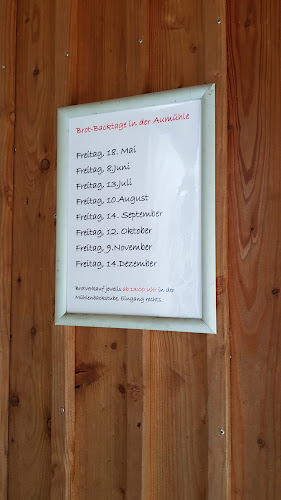 Brot-Backtage in der Aumühle
Freitag, 18. Mai
Freitag, 8.Juni
Freitag, 13.Juli
Freitag, 10.August
Freitag, 14. September
Freitag, 12. Oktober
Freitag, 9.November
Freitag, 14.Dezember
Brotverkauf jeweils ab 14:00 Uhr in der
Mühlenbackstube, Eingang rechts.